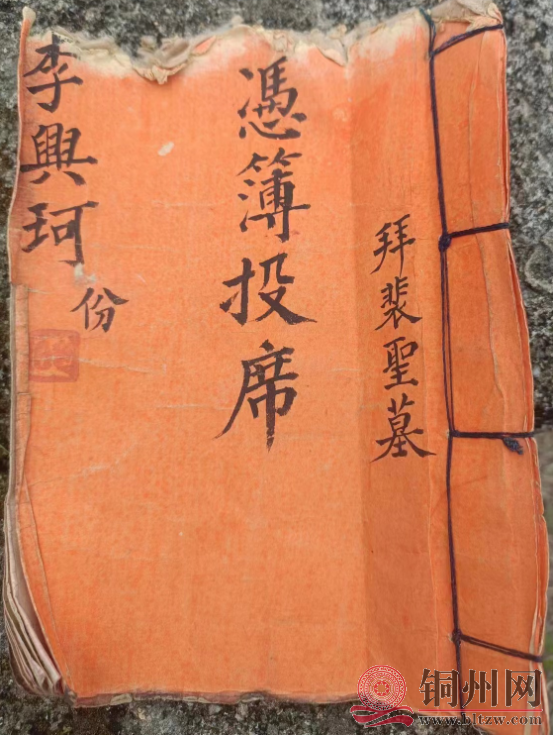 拜裴聖墓
憑簿投席
李興珂份
铜州网
www.bltzw.com